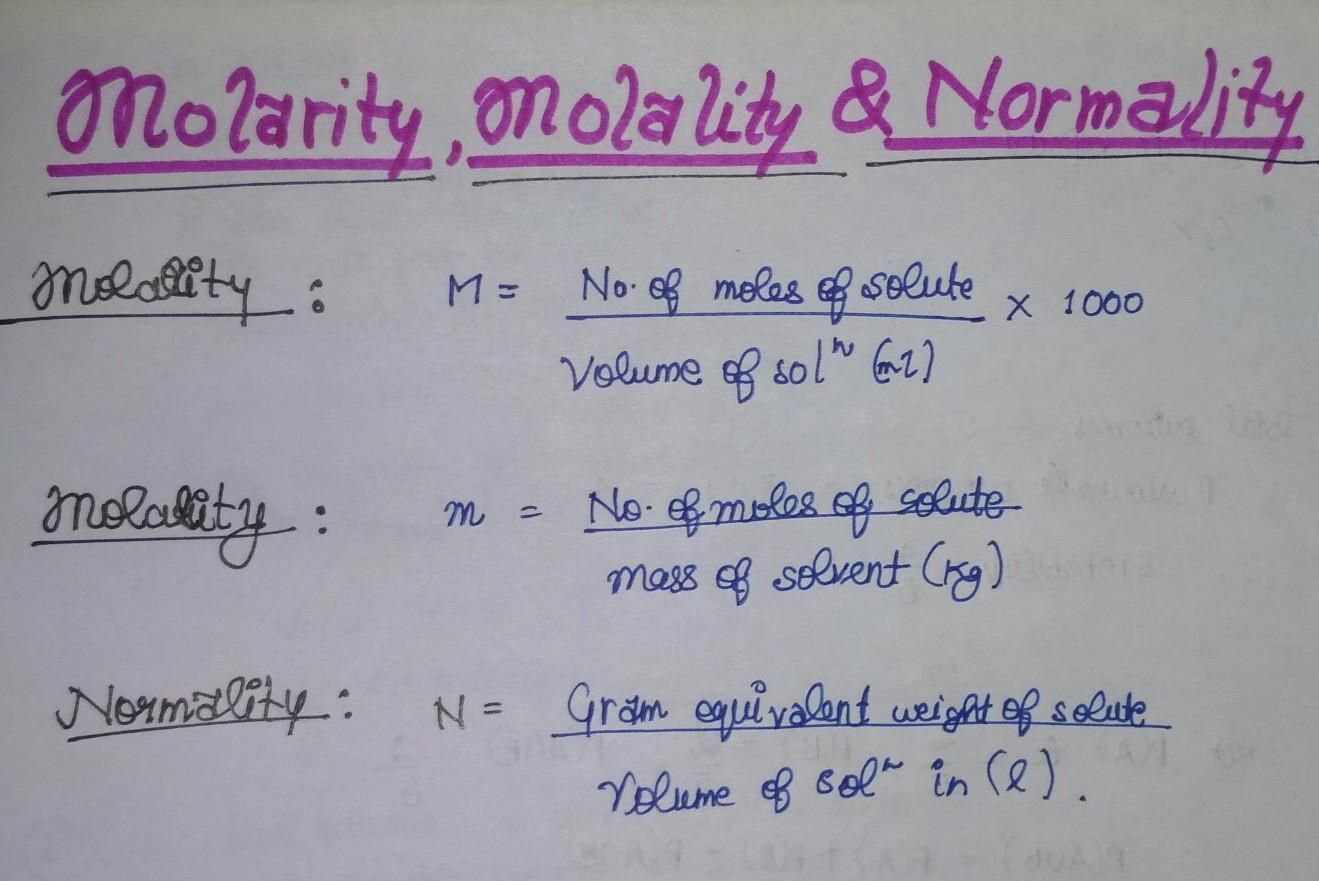 Molarity, Molality & Normality
Molality : M = No. of moles of solute / Volume of solⁿ (ml) × 1000
Molality : m = No. of moles of solute / mass of solvent (Kg)
Normality : N = Gram equivalent weight of solute / Volume of solⁿ in (l).